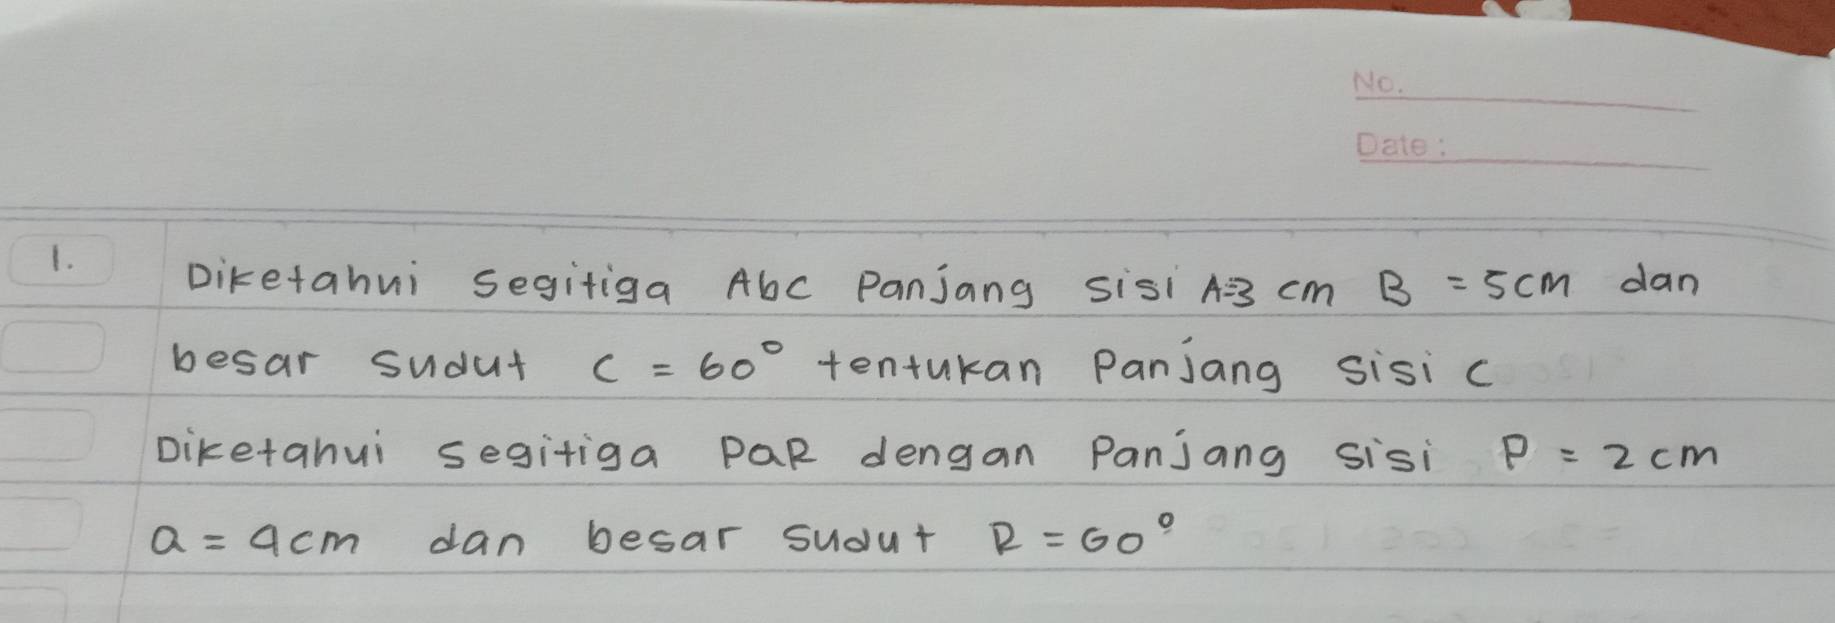 No.
Date :
1. Diketahui segitiga Abc Panjang sisi A=3 cm B = 5cm dan
besar sudut c = 60° tentukan Panjang sisi c
Diketahui segitiga PQR dengan Panjang sisi P = 2cm
Q = 4cm dan besar sudut R = 60°